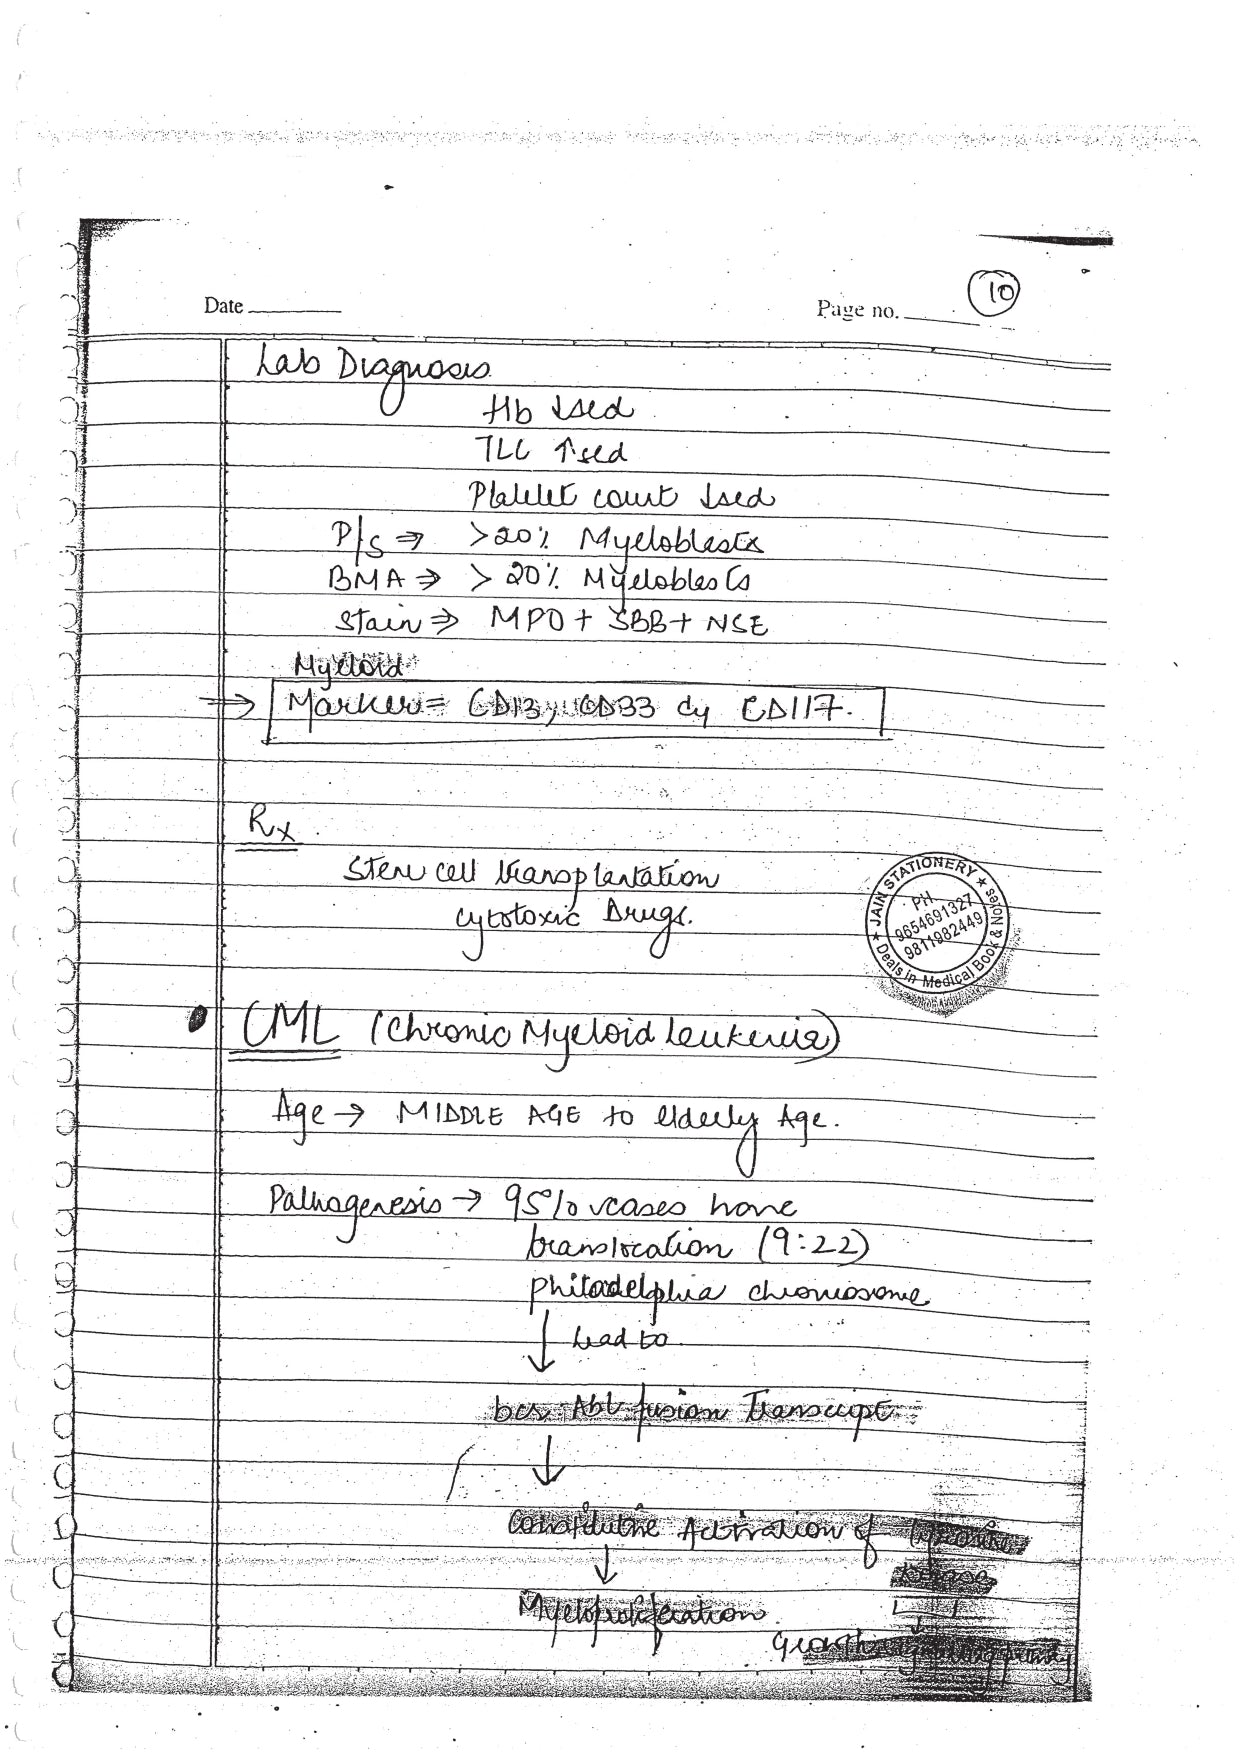 10
Date
Page no.
Lab Diagnosis
Hb ↓sed
TLC ↑sed
Platelet count ↓sed
P/S ⇒ >20% Myeloblasts
BMA ⇒ > 20% Myeloblasts
Stain ⇒ MPO + SBB + NSE
Myeloid
→ Marker = CD13, CD33 Cy CD117.
Rx
Stem cell transplantation
cytotoxic Drugs.
★ JAIN STATIONERY ★
PH.
9654691327
9811982449
Deals in Medical Book & Notes
CML (Chronic Myeloid leukemia)
Age → MIDDLE AGE to elderly Age.
Pathogenesis → 95% cases have
translocation (9:22)
Philadelphia chromosome
↓ lead to
bcr-Abl fusion Transcript
↓
Constitutive Activation of tyrosine
kinase
↓
Myeloproliferation.
Growth